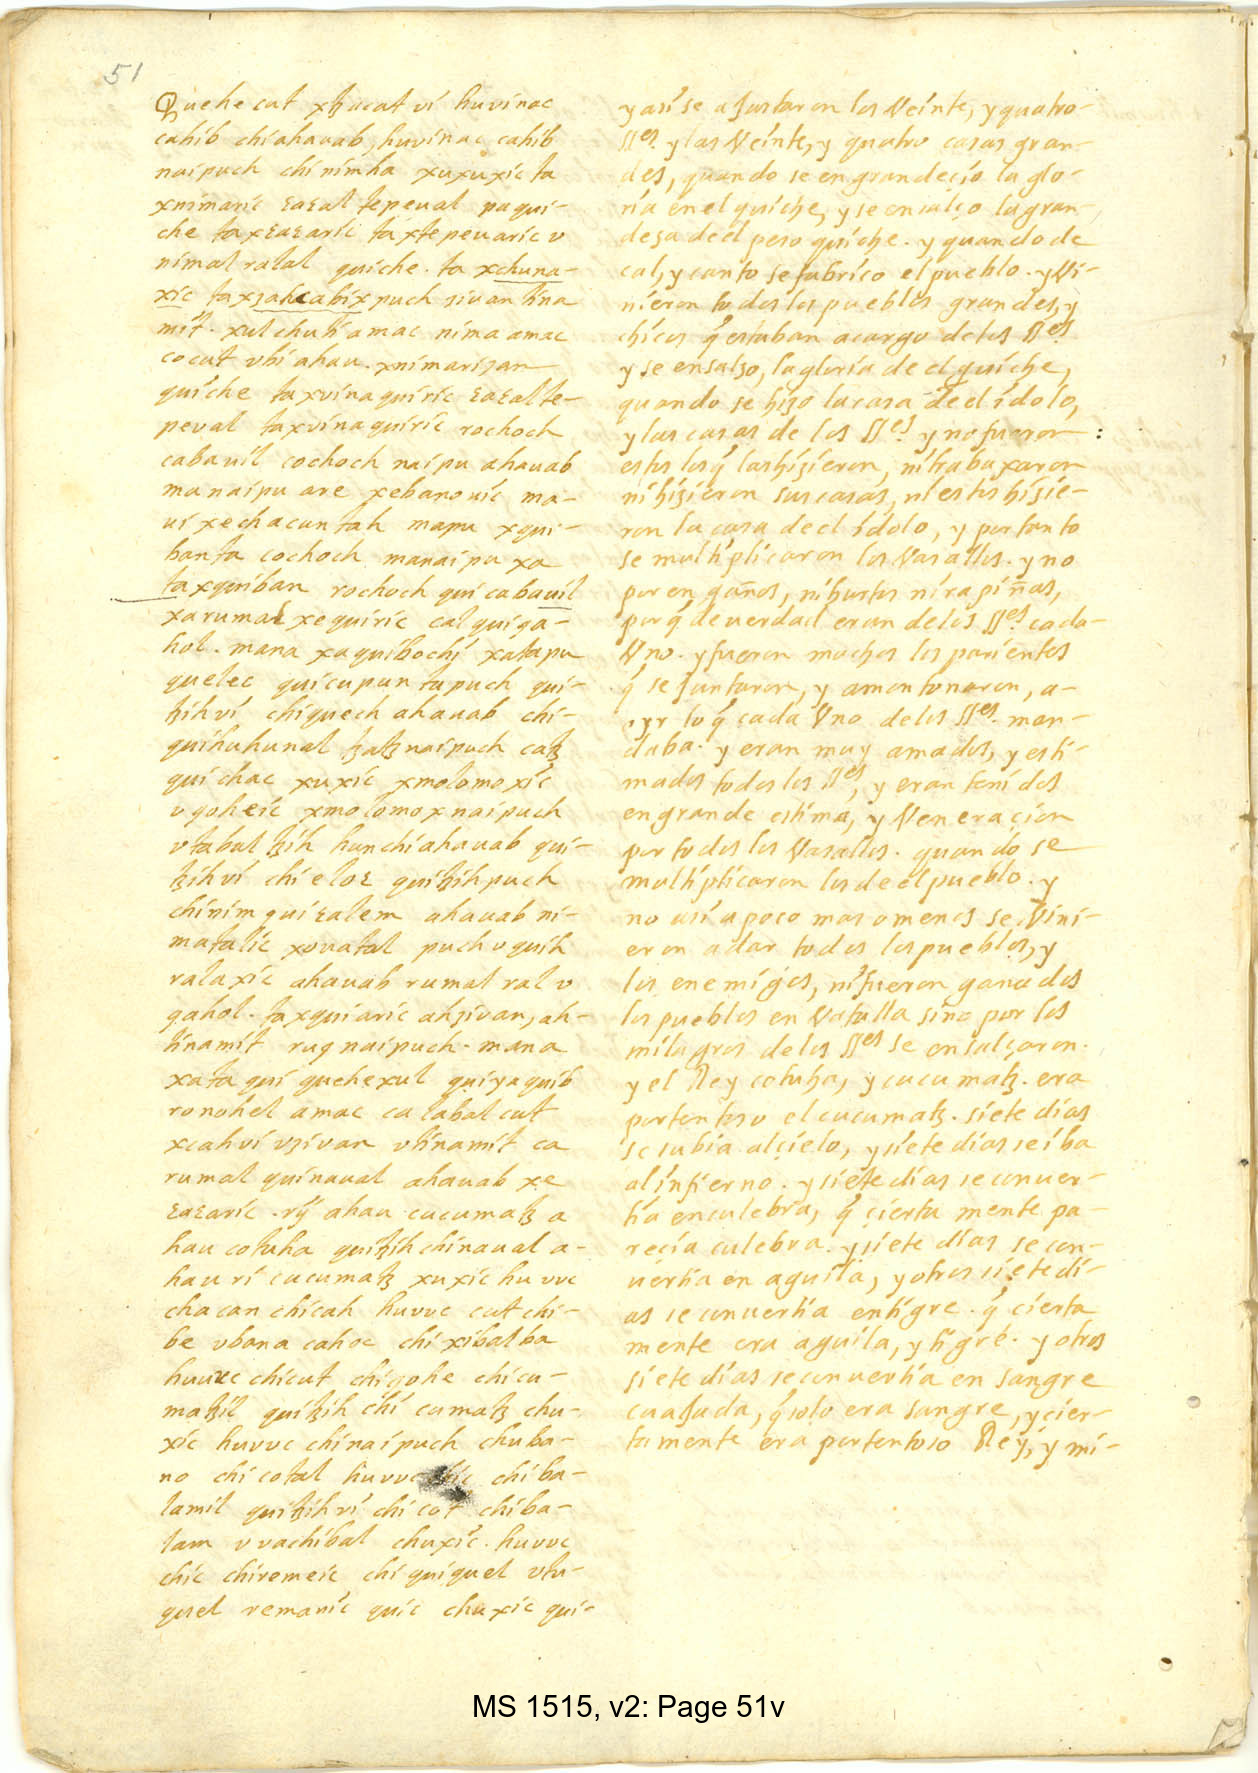 51
Quehe cut xꜩacat ví huvinac
cahib chiahauab, huvinac cahib
naipuch chi nimha xuxuxic ta
xnimaric ɛaɛal tepeual paqui-
che ta xɛaɛaric ta xtepeuaric v
nimal ralal quiche. ta xchuna-
xic taxzahcabíxpuch sivan tina
mit. xul chuti amac nima amac
cocut vbi ahau. xnimarisan
quiche taxvinaquiric ɛaɛal te-
peval taxvinaquiric rochoch
cabauil cochoch naipu ahauab
manaipu are xebanouic ma-
ui xechacuntah mapu xqui-
banta cochoch manaipu xa
taxquiban rochoch qui cabauil
xarumal xequiric calquiqa-
hol. mana xaquibochí xatapu
quelec quicupun tapuch qui-
ꜩihví chiquech ahauab chi-
quihuhunal ꜩatꜩnaipuch catꜩ
quichac xuxic xmolomoxic
vqoheic xmolomoxnaipuch
vtabal ꜩih hunchiahauab qui-
ꜩihví chieloɛ quiꜩihpuch
chinim qui ɛalem ahauab ni-
matalic xovatal puch vquih
ralaxic ahauab rumal ral v
qahol. taxquiaric ahzivan, ah-
tinamit ruq naipuch. mana
xata qui quehexul quiyaquib
ronohel amac ca labal cut
xcahvi vzivan vtinamit ca
rumal quinaual ahauab xe
ɛaɛaric. rij ahau cucumatꜩ a
hau cotuha quiꜩih chinaual a-
hau ri cucumatꜩ xuxic hu vuc
chacan chicah huvuc cut chi-
be vbana cahoc chi xibalba
huvuc chicut chiqohe chicu-
matꜩil quiꜩih chí cumatꜩ chu-
xic huvuc chinaipuch chuba-
no chi cotal huvuc chic chi ba-
lamil quiꜩihví chi cot chiba-
lam vvachibal chuxic. huvuc
chic chiremeic chi quiquel vtu-
quel remanic quic chuxic qui-
y así se aJustaron los Veinte, y quatro
SSes. y las Veinte, y quatro casas gran-
des, quando se engrandeçio la glo-
ria en el quiche, y se ensalço la gran-
desa de el peso quiche. y quando de
cal, y canto se fabrico el pueblo. y Vi-
nieron todos los pueblos grandes, y
chicos q̃ estaban acargo de los SSes
y se ensalso, la gloria de el quiche,
quando se hizo la casa de el ídolo,
y las casas de los SSes. y no fueron :
estos los q̃ las hizieron, ni trabaxaron
ni hizieron sus casas, ni estos hizie-
ron la casa de el ídolo, y por tanto
se multiplicaron los Vasallos. y no
por en gaños, ni hurtos ni rapiñas,
por q̃ de verdad eran de los SSes. cada
Vno. y fueron muchos los parientes
q̃ se Juntaron, y amontonaron, a-
oyr lo q̃ cada Vno de los SSes. man-
daba. y eran muy amados, y esti-
mados todos los SSes, y eran tenidos
en grande estima, y Veneraçion
por todos los Vasallos. quando se
multiplicaron los de el pueblo. y
no así a poco mas o menos se Vini-
eron a dar todos los pueblos, y
los enemigos, ni fueron ganados
los pueblos en Vatalla sino por los
milagros de los SSes se ensalçaron.
y el Rey cotuha, y cucumatꜩ. era
portentoso el cucumatꜩ. siete dias
se subia al çielo, y siete dias se iba
al infierno. y siete dias se conuer-
tia en culebra, q̃ çierta mente pa-
recia culebra. y siete dias se con-
uertia en aguila, y otros siete di-
as se conuertia en tigre. q̃ çierta
mente era aguila, y tigre. y otros
siete dias se conuertia en sangre
cuaJada, q̃ solo era sangre, y çier-
tamente era portentoso Rey, y mi-
MS 1515, v2: Page 51v